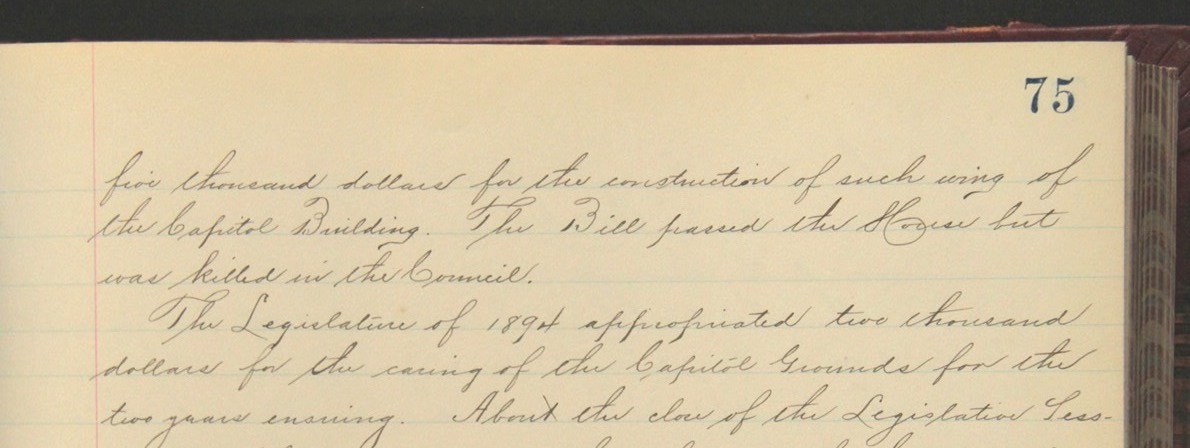 75
five thousand dollars for the construction of such wing of
the Capitol Building. The Bill passed the House but
was killed in the Council.
The Legislature of 1894 appropriated two thousand
dollars for the caring of the Capitol Grounds for the
two years ensuing. About the close of the Legislative Sess-